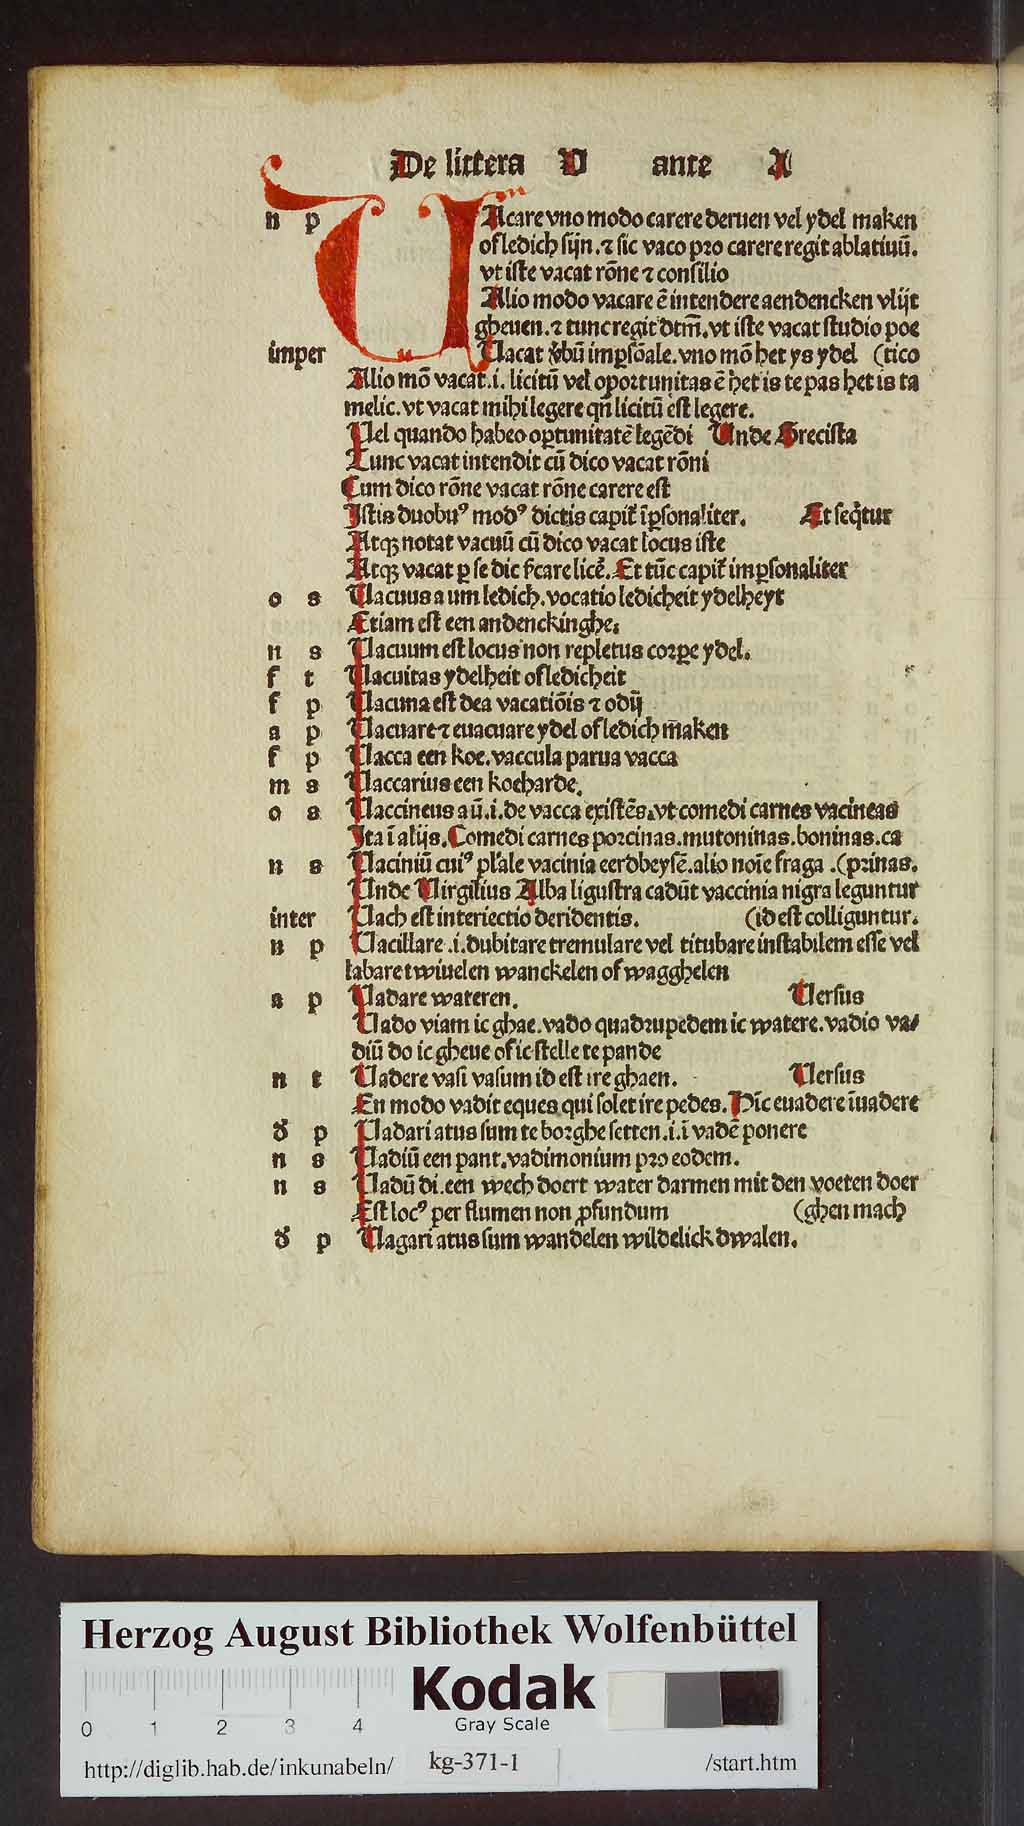 De littera V ante A
n p VAcare vno modo carere deruen vel ydel maken
of ledich sijn. ⁊ sic vaco pro carere regit ablatiuū.
vt iste vacat rōne ⁊ consilio
Alio modo vacare ē intendere aendencken vlijt
gheuen. ⁊ tunc regit dtm̄. vt iste vacat studio poe
imper Uacat v̓bū imp̱sōale. vno mō het ys ydel (tico
Alio mō vacat .i. licitū vel oportunitas ē het is te pas het is ta
melic. vt vacat mihi legere qn̄ licitū est legere.
Uel quando habeo op̱tunitatē legēdi Unde Grecista
Tunc vacat intendit cū dico vacat rōni
Cum dico rōne vacat rōne carere est
Istis duobuꝰ modꝰ dictis capit̄ īp̱sonaliter. Et seq̄tur
Atqꝫ notat vacuū cū dico vacat locus iste
Atqꝫ vacat p̱ se dic s̄care licē. Et tūc capit̄ imp̱sonaliter
o s Uacuus a um ledich. vocatio ledicheit ydelheyt
Etiam est een andenckinghe.
n s Uacuum est locus non repletus corpe ydel.
f t Uacuitas ydelheit of ledicheit
f p Uacuna est dea vacatiōis ⁊ odij
a p Uacuare ⁊ euacuare ydel of ledich m̄aken
f p Uacca een koe. vaccula parua vacca
m s Uaccarius een koeharde.
o s Uaccineus a ū .i. de vacca existēs. vt comedi carnes vacineas
Ita ī alijs. Comedi carnes porcinas. mutoninas. boninas. ca
n s Uaciniū cuiꝰ pl̄ale vacinia eerdbeysē. alio noīe fraga . (prinas.
Unde Uirgilius Alba ligustra cadūt vaccinia nigra leguntur
inter Uach est interiectio deridentis. (id est colliguntur.
n p Uacillare .i. dubitare tremulare vel titubare instabilem esse vel
labare twiuelen wanckelen of wagghelen
a p Uadare wateren. Uersus
Uado viam ic ghae. vado quadrupedem ic watere. vadio va⸗
diū do ic gheue of ic stelle te pande
n t Uadere vasi vasum id est ire ghaen. Uersus
En modo vadit eques qui solet ire pedes. Hīc euadere īuadere
d̓ p Uadari atus sum te borghe setten .i. ī vadē ponere
n s Uadiū een pant. vadimonium pro eodem.
n s Uadū di. een wech doert water darmen mit den voeten doer
Est locꝰ per flumen non ꝓfundum (ghen mach
d̓ p Uagari atus sum wandelen wildelick dwalen.
Herzog August Bibliothek Wolfenbüttel
Kodak
0 1 2 3 4 Gray Scale
http://diglib.hab.de/inkunabeln/ kg-371-1 /start.htm